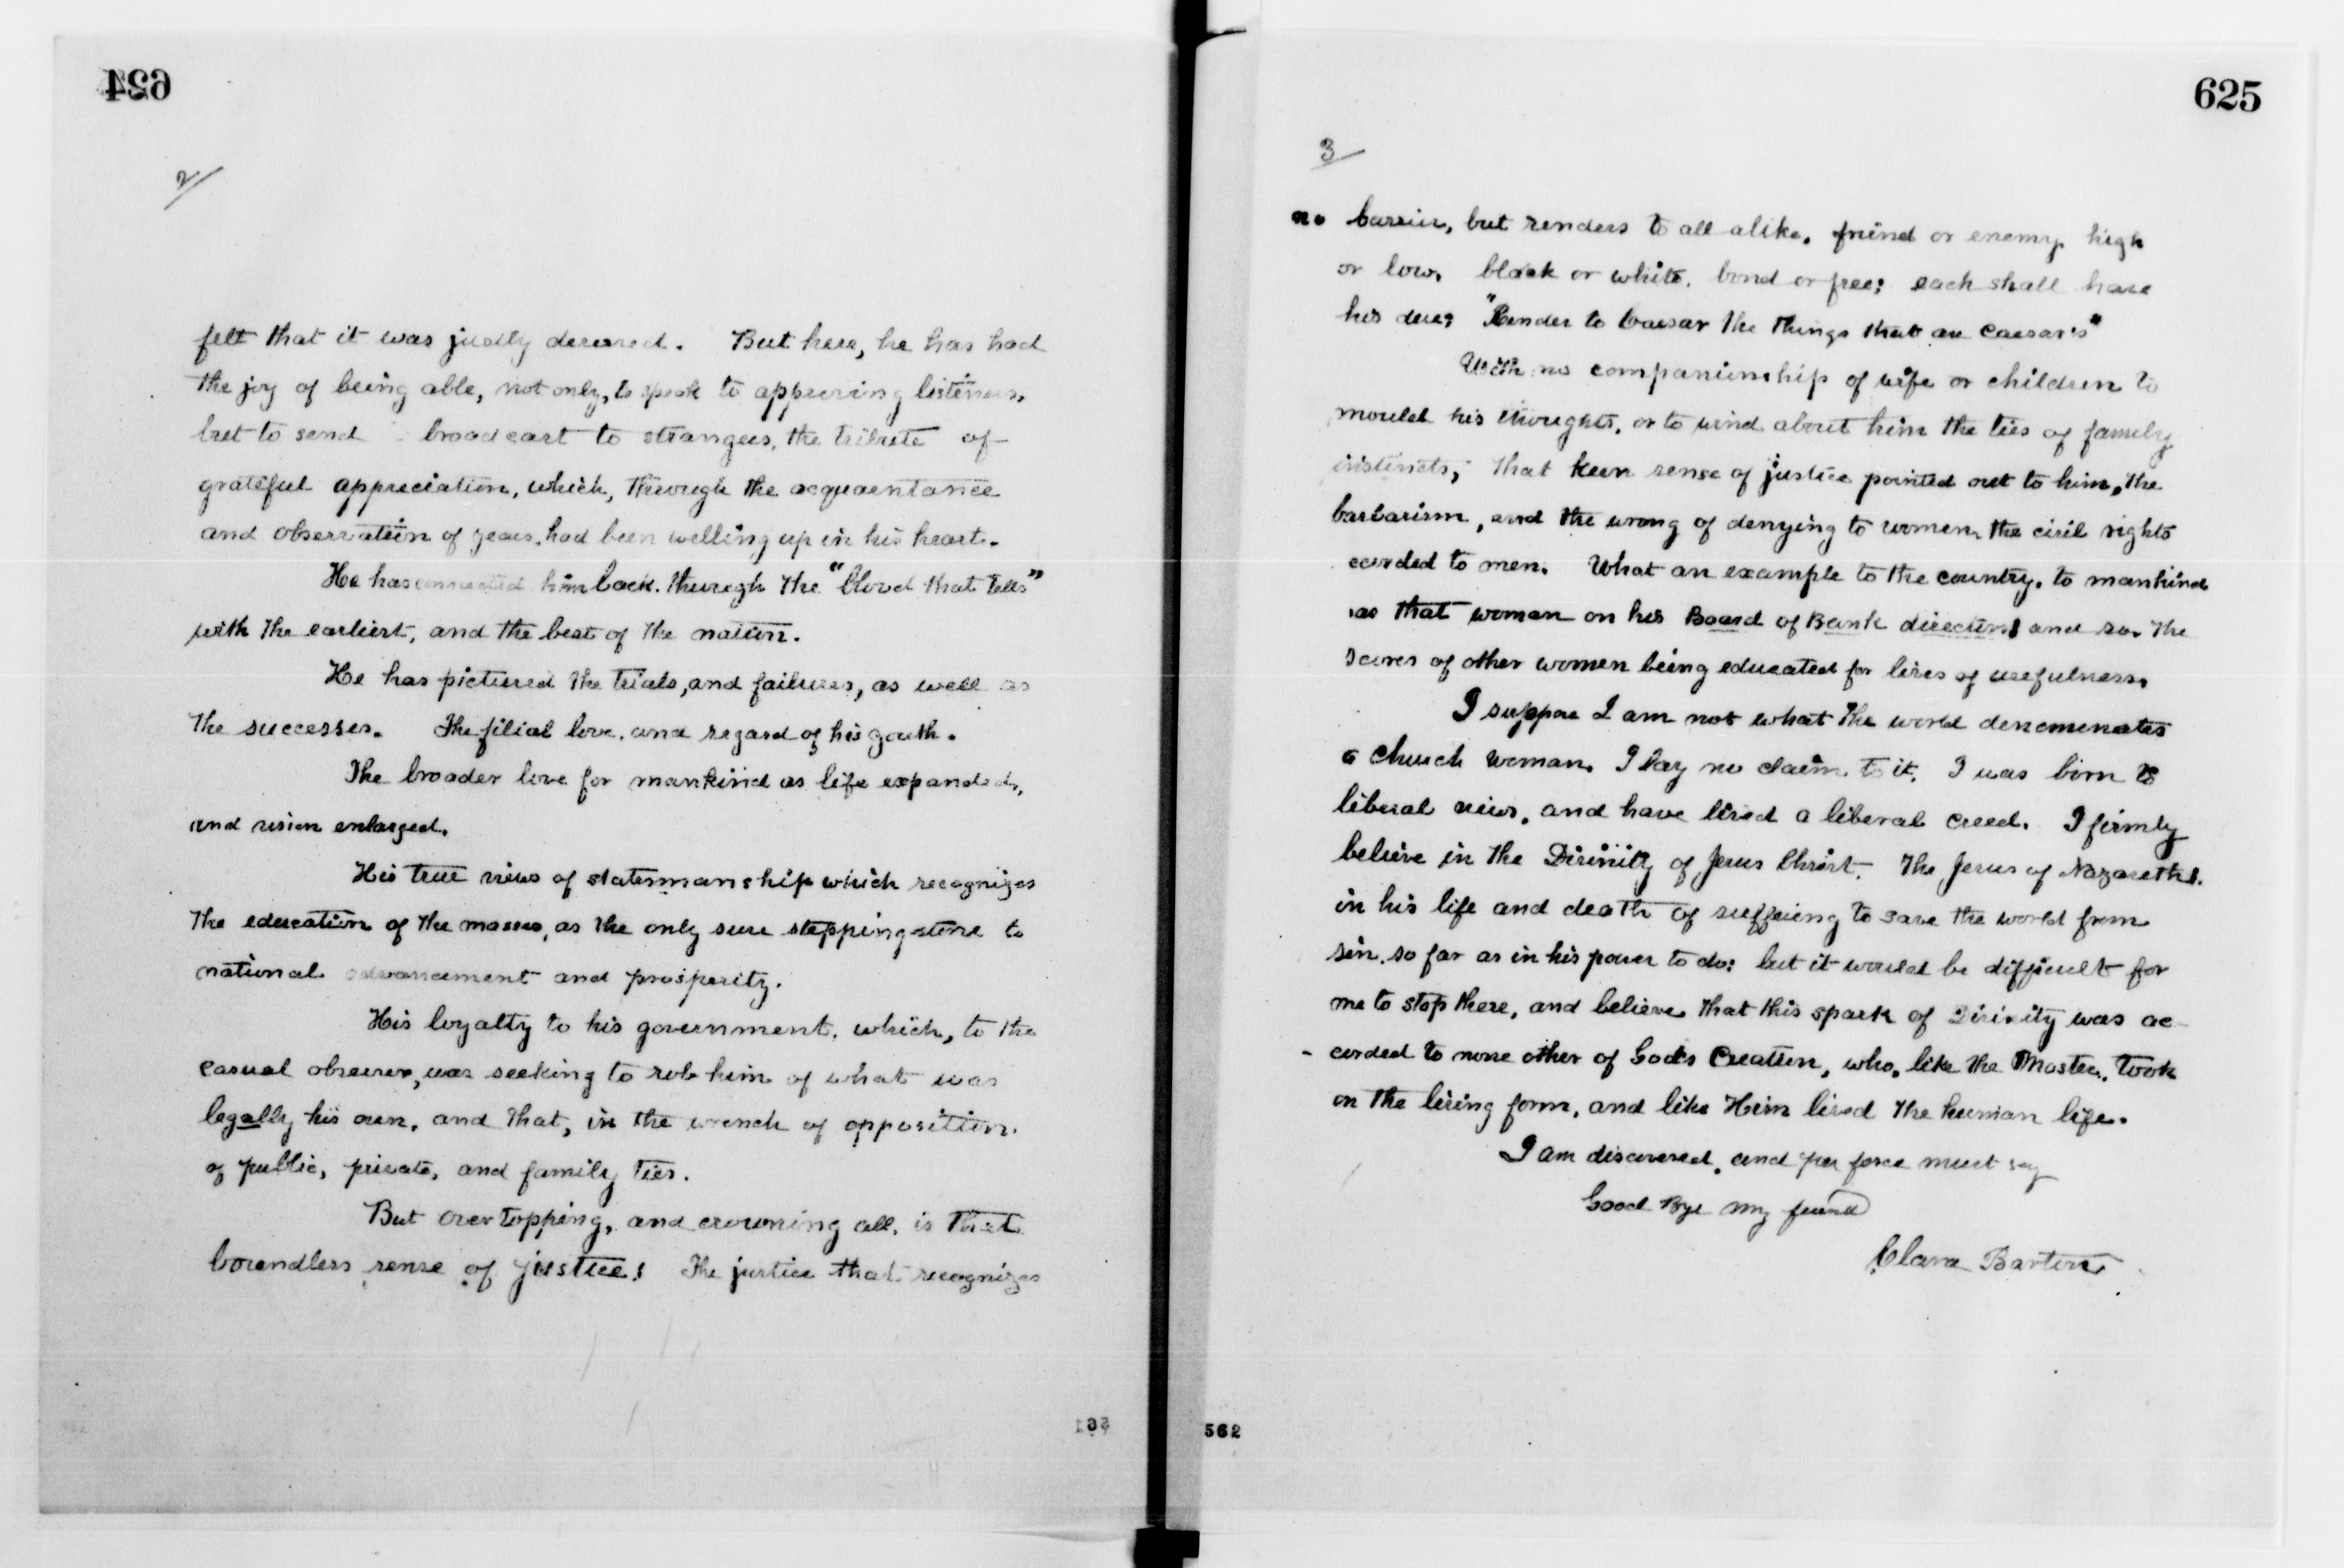 624
2/
felt that it was justly deserved. But here, he has had
the joy of being able, not only, to speak to approving listeners,
but to send broadcast to strangers, the tribute of
grateful appreciation, which, through the acquaintance
and observation of years, had been welling up in his heart.
He has connected him back. through the "blood that tells"
with the earliest, and the best of the nation.
He has pictured the trials, and failures, as well as
the successes. The filial love, and regard of his youth.
The broader love for mankind as life expanded,
and vision enlarged.
His true views of statesmanship which recognizes
the education of the masses, as the only sure stepping stone to
national advancement and prosperity.
His loyalty to his government, which, to the
casual observer, was seeking to rob him of what was
legally his own, and that, in the wrench of opposition
of public, private, and family ties.
But over topping, and crowning all, is that
boundless sense of justice! The justice that recognizes
561
625
3/
no barrier, but renders to all alike, friend or enemy, high
or low, black or white, bond or free; each shall have
his due; "Render to Caesar the things that are Caesar's"
With no companionship of wife or children to
mould his thoughts, or to wind about him the ties of family
instincts; that keen sense of justice pointed out to him, the
barbarism, and the wrong of denying to women, the civil rights
accorded to men. What an example to the country, to mankind
was that woman on his Board of Bank directors! and so, the
scores of other women being educated for lives of usefulness.
I suppose I am not what the world denominates
a church woman. I lay no claim to it. I was born to
liberal views, and have lived a liberal creed. I firmly
believe in the Divinity of Jesus Christ. The Jesus of Nazareth.
in his life and death of suffering to save the world from
sin, so far as in his power to do: but it would be difficult for
me to stop there, and believe that this spark of Divinity was ac-
- corded to none other of God's Creation, who, like the Master, took
on the living form, and like Him lived the human life.
I am discovered, and per force must say
Good Bye my friend
Clara Barton
562